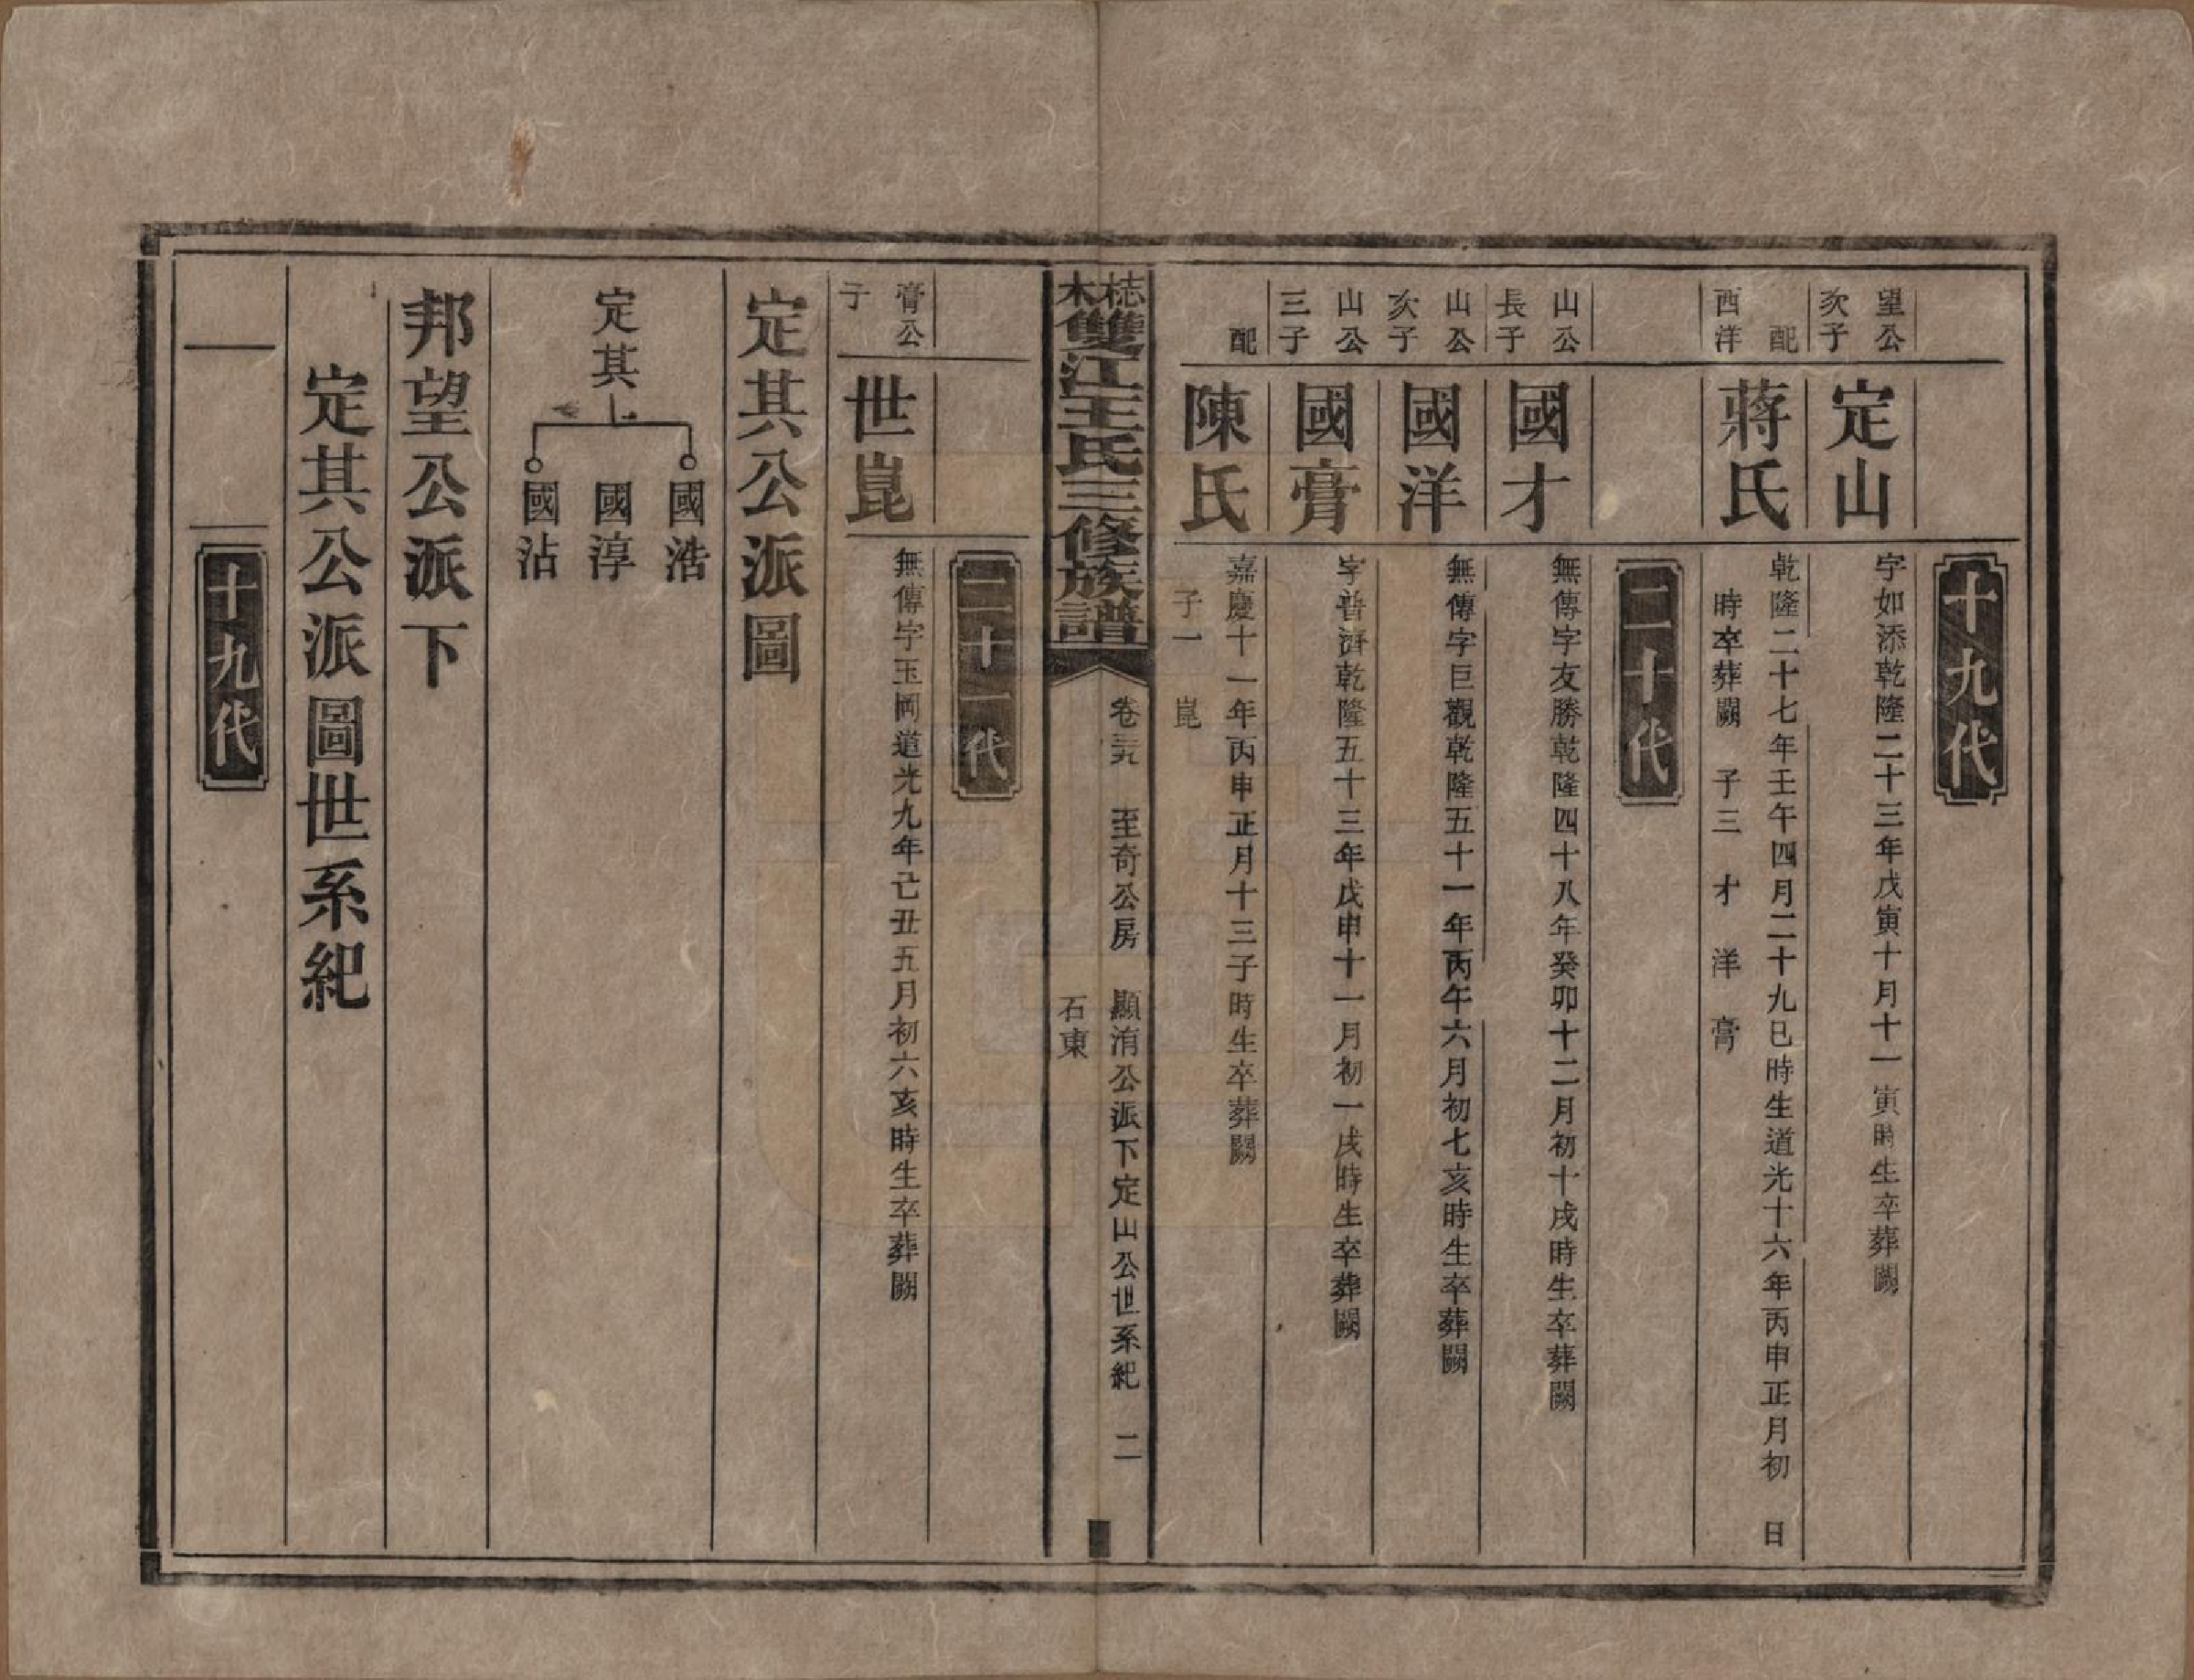 十九代
望公次子
定山
字如添乾隆二十三年戊寅十月十一寅時生卒葬闕
配西洋
蔣氏
乾隆二十七年壬午四月二十九巳時生道光十六年丙申正月初 日
時卒葬闕 子三 才 洋 膏
二十代
山公長子
國才
無傳字友勝乾隆四十八年癸卯十二月初十戌時生卒葬闕
山公次子
國洋
無傳字巨觀乾隆五十一年丙午六月初七亥時生卒葬闕
山公三子
國膏
字普濟乾隆五十三年戊申十一月初一戌時生卒葬闕
配
陳氏
嘉慶十一年丙申正月十三子時生卒葬闕
子一 崑
梽木雙江王氏三修族譜
卷三十九 至奇公房 顯洧公派下定山公世系紀 二
石東
二十一代
膏公子
世崑
無傳字玉岡道光九年己丑五月初六亥時生卒葬闕
定其公派圖
定其
國浩
國淳
國沾
邦望公派下
定其公派圖世系紀
十九代